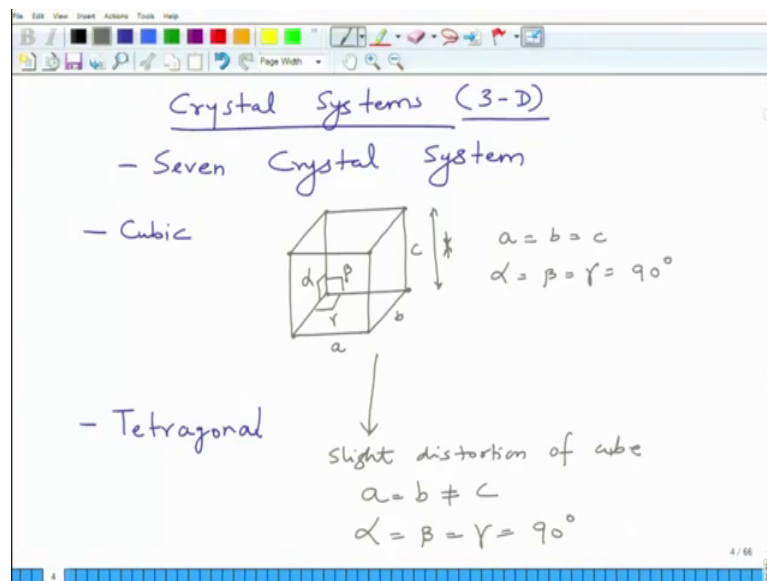 File Edit View Insert Actions Tools Help
B I
Page Width
Crystal Systems (3-D)
- Seven Crystal System
- Cubic
a = b = c
α = β = γ = 90°
α β γ
a b c
- Tetragonal
Slight distortion of cube
a = b ≠ c
α = β = γ = 90°
4 / 66
4